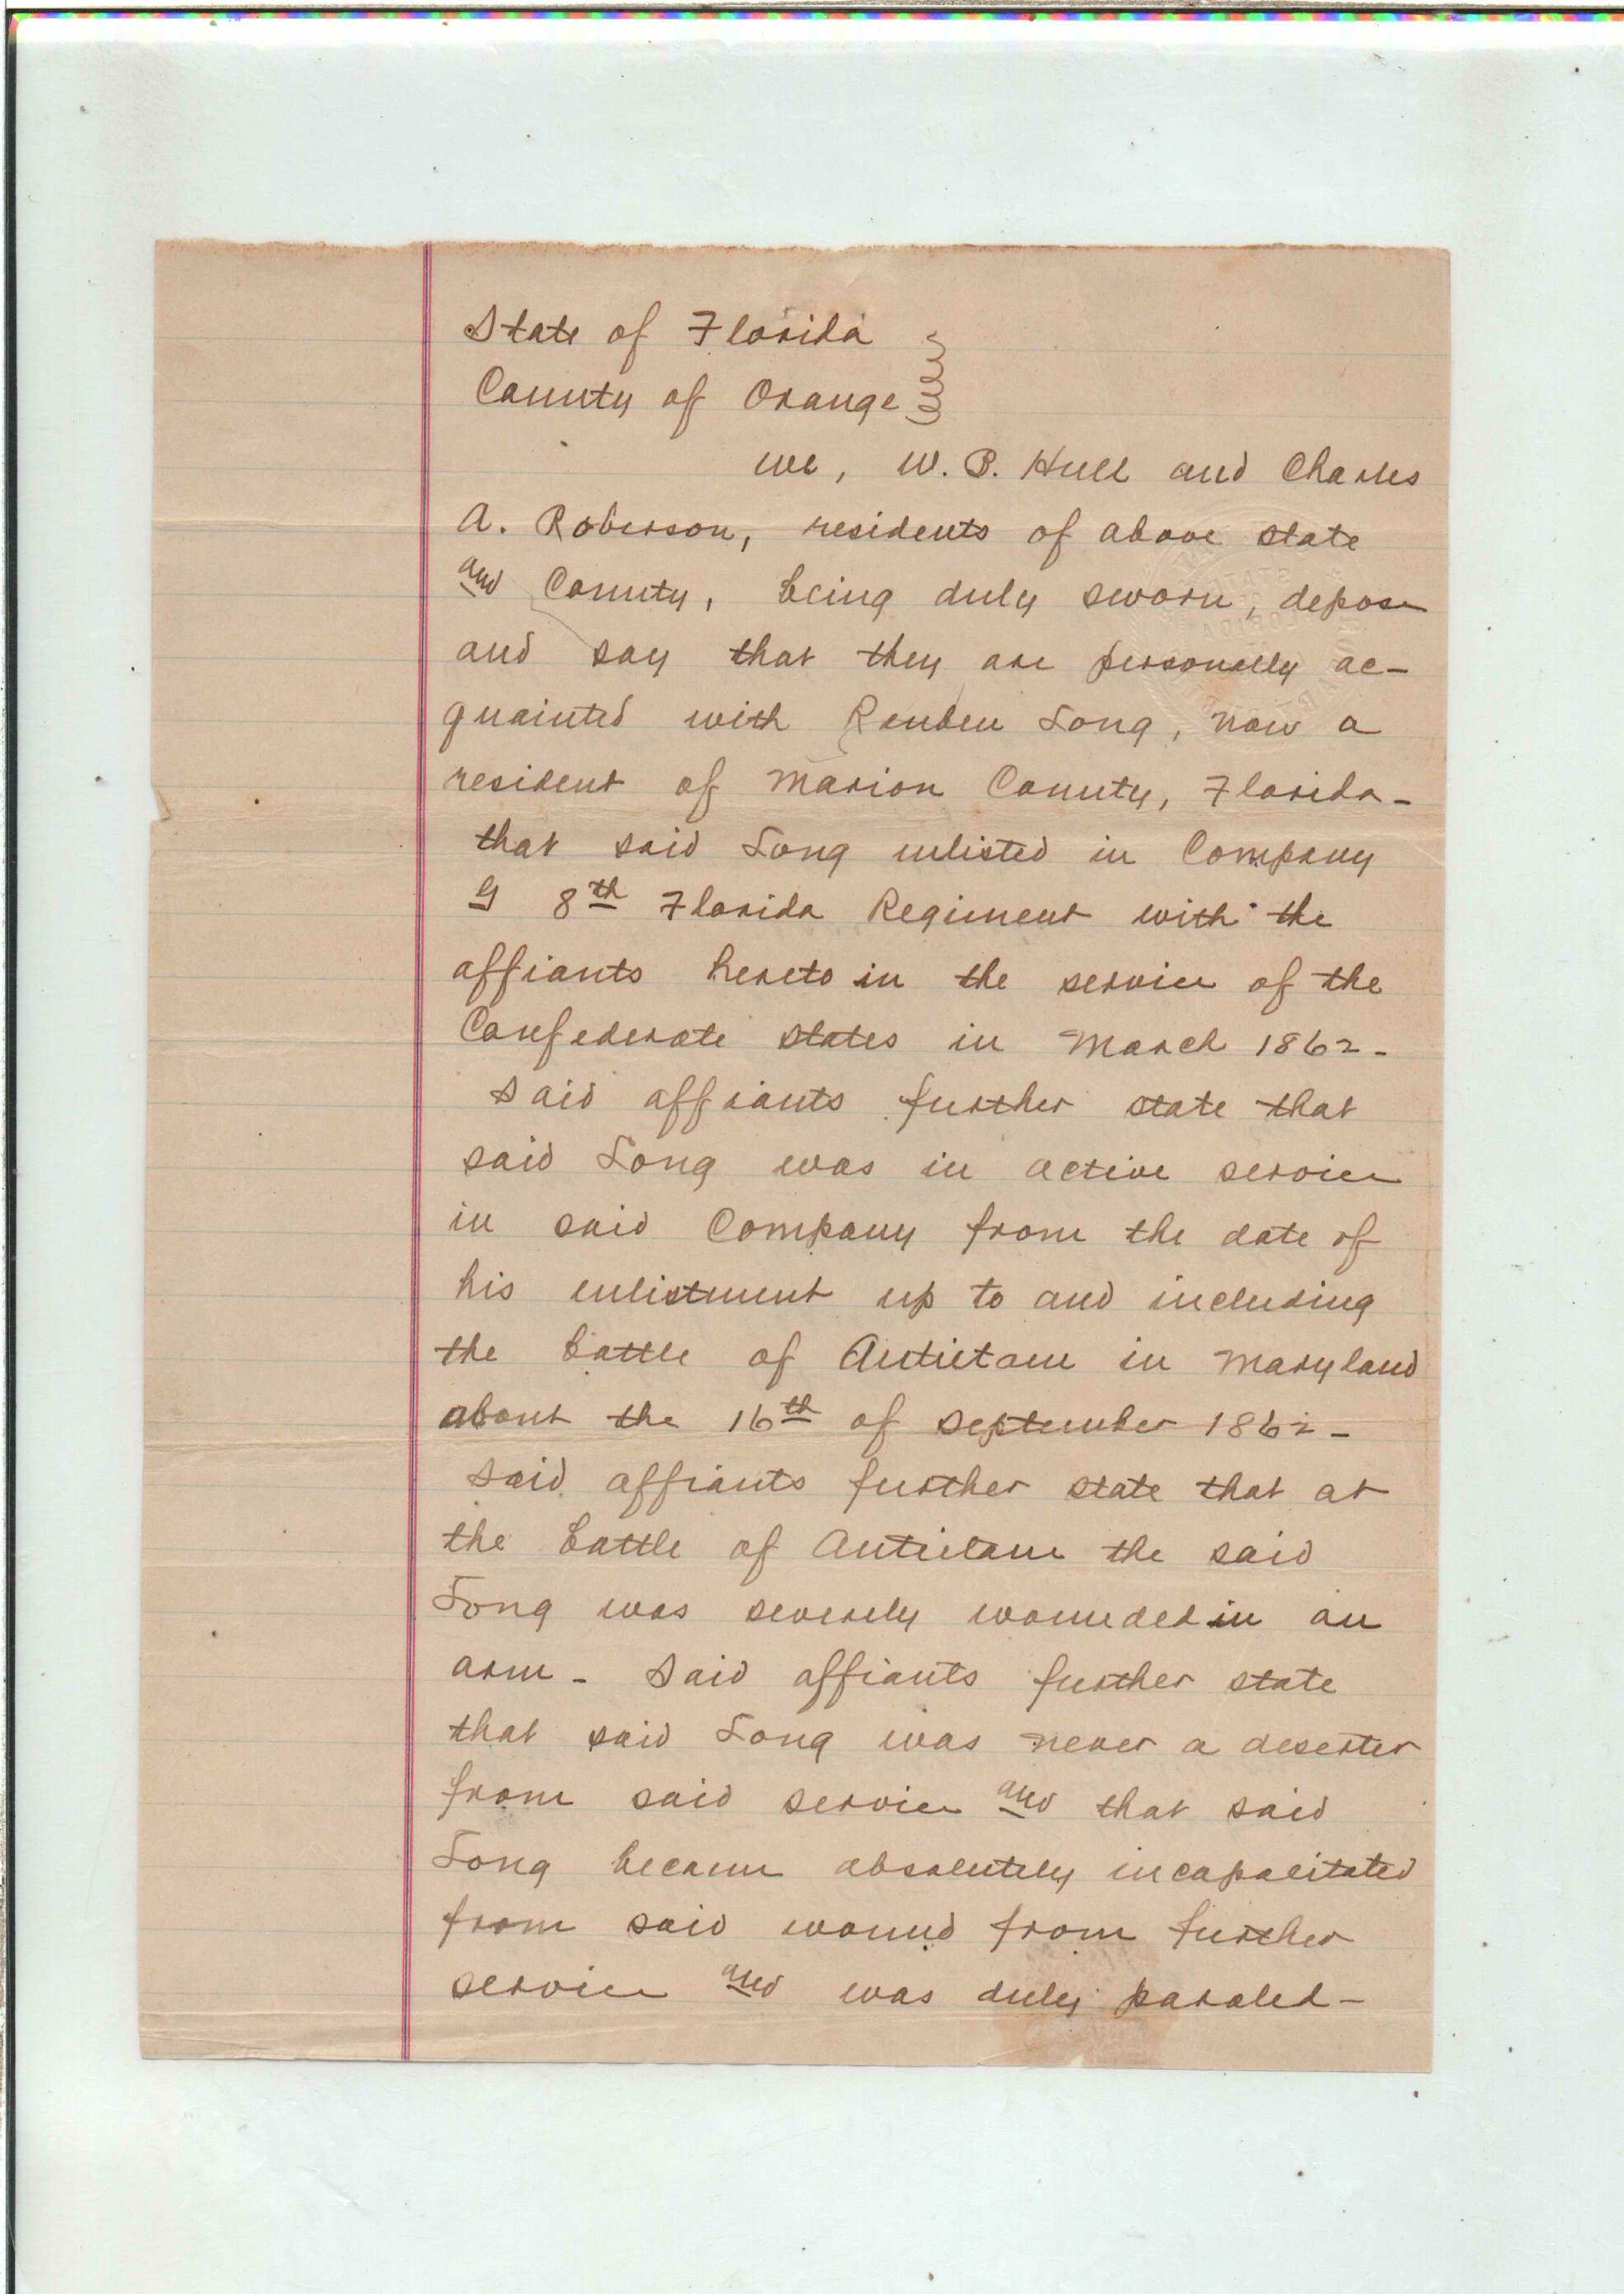 State of Florida
County of Orange
We, W. B. Hull and Charles
A. Roberson, residents of above state
and County, being duly sworn, depose
and say that they are personally ac-
quainted with Reuben Long, now a
resident of Marion County, Florida-
that said Long enlisted in Company
G 8th Florida Regiment with the
affiants hereto in the service of the
Confederate states in March 1862-
Said affiants further state that
said Long was in active service
in said Company from the date of
his enlistment up to and including
the battle of Antietam in Maryland
about the 16th of September 1862-
Said affiants further state that at
the battle of Antietam the said
Long was severely wounded in an
arm- Said affiants further state
that said Long was never a deserter
from said service and that said
Long became absolutely incapacitated
from said wound from further
service and was duly paroled-